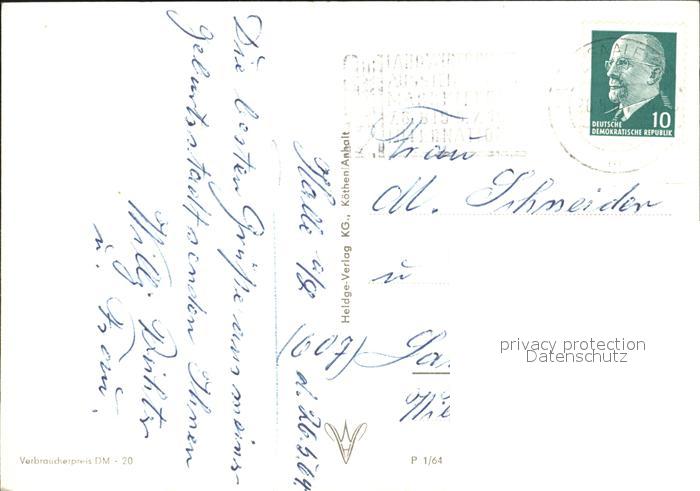 Halle a/S
d. 26.5.64
Die besten Grüße aus meiner
Geburtsstadt senden Ihnen
Willi Richter
u. Frau.
Frau
M. Schneider
u
(607)
DEUTSCHE
DEMOKRATISCHE REPUBLIK
10
Heldge-Verlag KG., Köthen/Anhalt
privacy protection
Datenschutz
Verbraucherpreis DM - 20
P 1/64